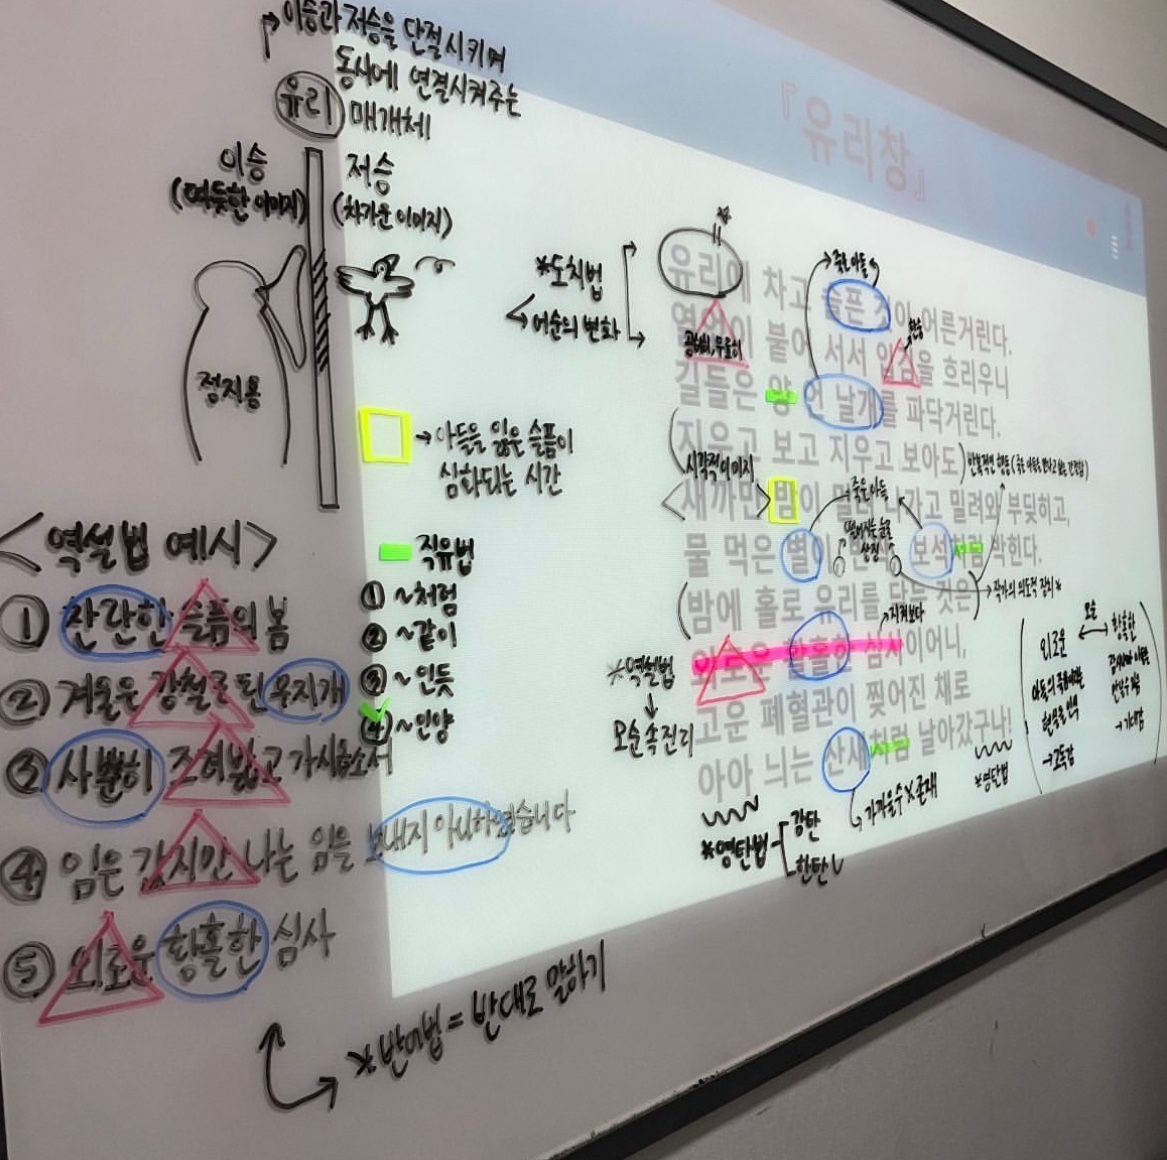 이승과 저승을 단절시키며
동시에 연결시켜주는
매개체
유리
이승
(따뜻한 이미지)
저승
(차가운 이미지)
정지용
아들을 잃은 슬픔이
심화되는 시간
직유법
① ~처럼
② ~같이
③ ~인듯
④ ~인양
<역설법 예시>
① 찬란한 슬픔의 봄
② 겨울은 강철로 된 무지개
③ 사뿐히 즈려밟고 가시옵소서
④ 임은 갔지만 나는 임을 보내지 아니하였습니다
⑤ 외로운 황홀한 심사
*반어법 = 반대로 말하기
『유리창』
*도치법
어순의 변화
죽은 아들
유리에 차고 슬픈 것이 어른거린다.
열없이 붙어 서서 입김을 흐리우니
길들은 양 언 날개를 파닥거린다.
지우고 보고 지우고 보아도
시각적 이미지
새까만 밤이 밀려 나가고 밀려와 부딪히고,
죽은 아들
물 먹은 별이 보석처럼 박힌다.
(밤에 홀로 유리를 닦는 것은)
지켜보다
외로운 황홀한 심사이어니,
*역설법
모순 속 진리
고운 폐혈관이 찢어진 채로
아아 늬는 산새처럼 날아갔구나!
*영탄법
감탄
한탄
가까울 수 X 존재
*영탄법
모순
외로운
황홀한
→고독감